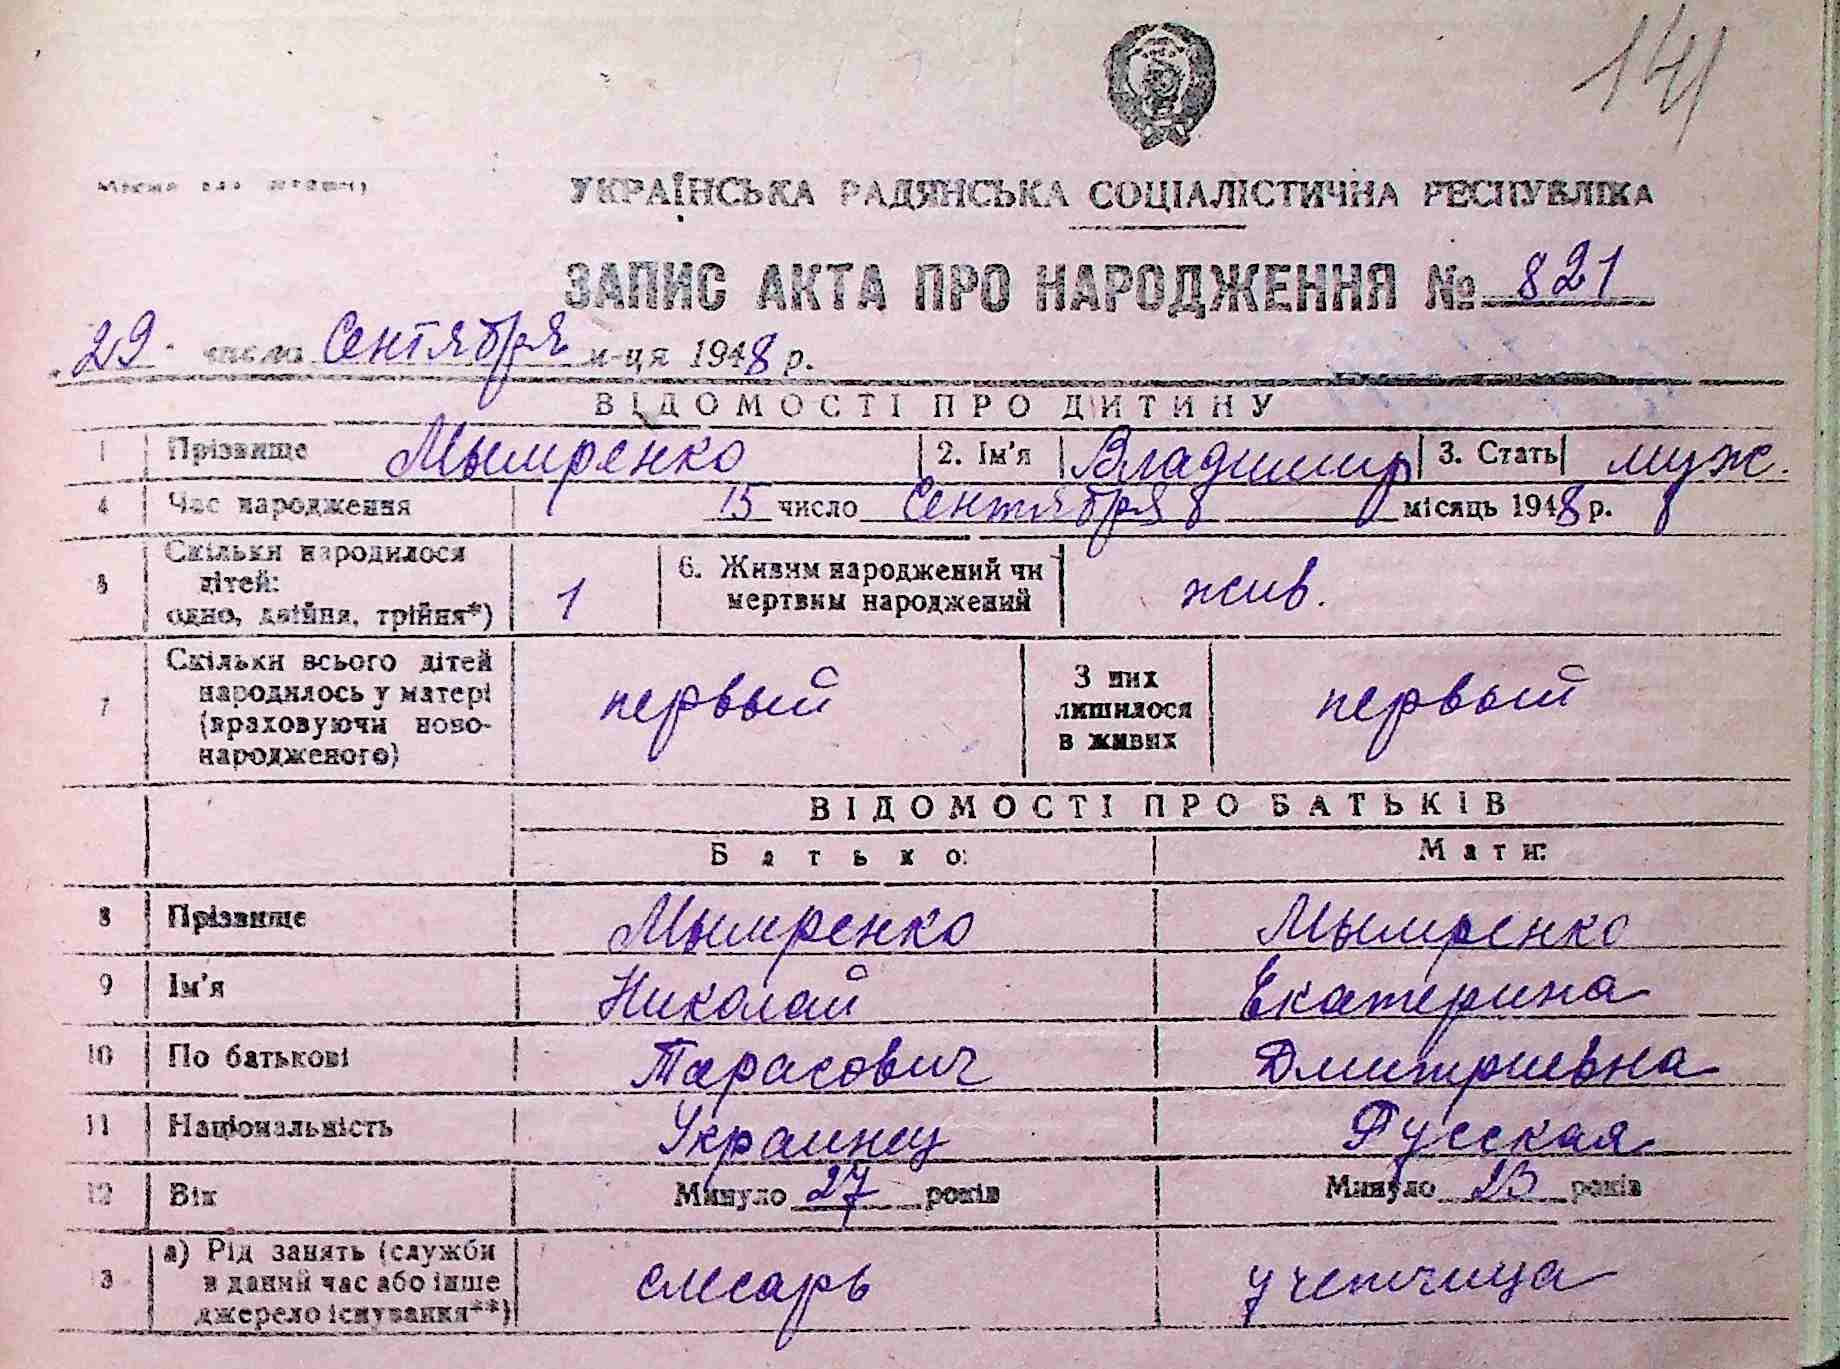 141
УКРАЇНСЬКА РАДЯНСЬКА СОЦІАЛІСТИЧНА РЕСПУБЛІКА
ЗАПИС АКТА ПРО НАРОДЖЕННЯ № 821
29 число Сентября м-ця 1948 р.
ВІДОМОСТІ ПРО ДИТИНУ
1 Прізвище Мымренко 2. Ім'я Владимир 3. Стать муж.
4 Час народження 15 число Сентября місяць 1948 р.
5 Скільки народилося дітей: одно, двійня, трійня*) 1 6. Живим народжений чи мертвим народжений жив.
7 Скільки всього дітей народилось у матері (враховуючи новонародженого) первый З них лишилося в живих первый
ВІДОМОСТІ ПРО БАТЬКІВ
Батько: Мати:
8 Прізвище Мымренко Мымренко
9 Ім'я Николай Екатерина
10 По батькові Тарасович Дмитриевна
11 Національність Украинец Русская
12 Вік Минуло 27 років Минуло 23 років
13 а) Рід занять (служби в даний час або інше джерело існування**) слесарь учетчица